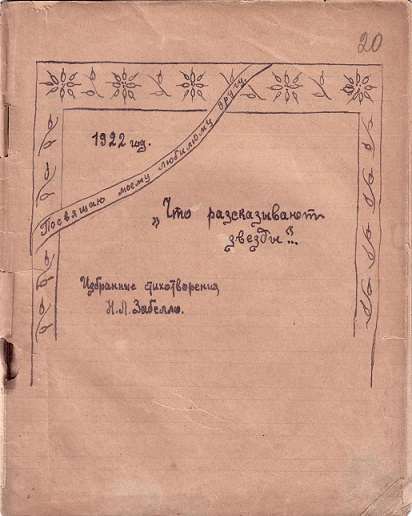 20
1922 год.
Посвящаю моему любимому другу.
„Что разсказывают
звезды"...
Избранные стихотворения
Н.Л. Забелло.